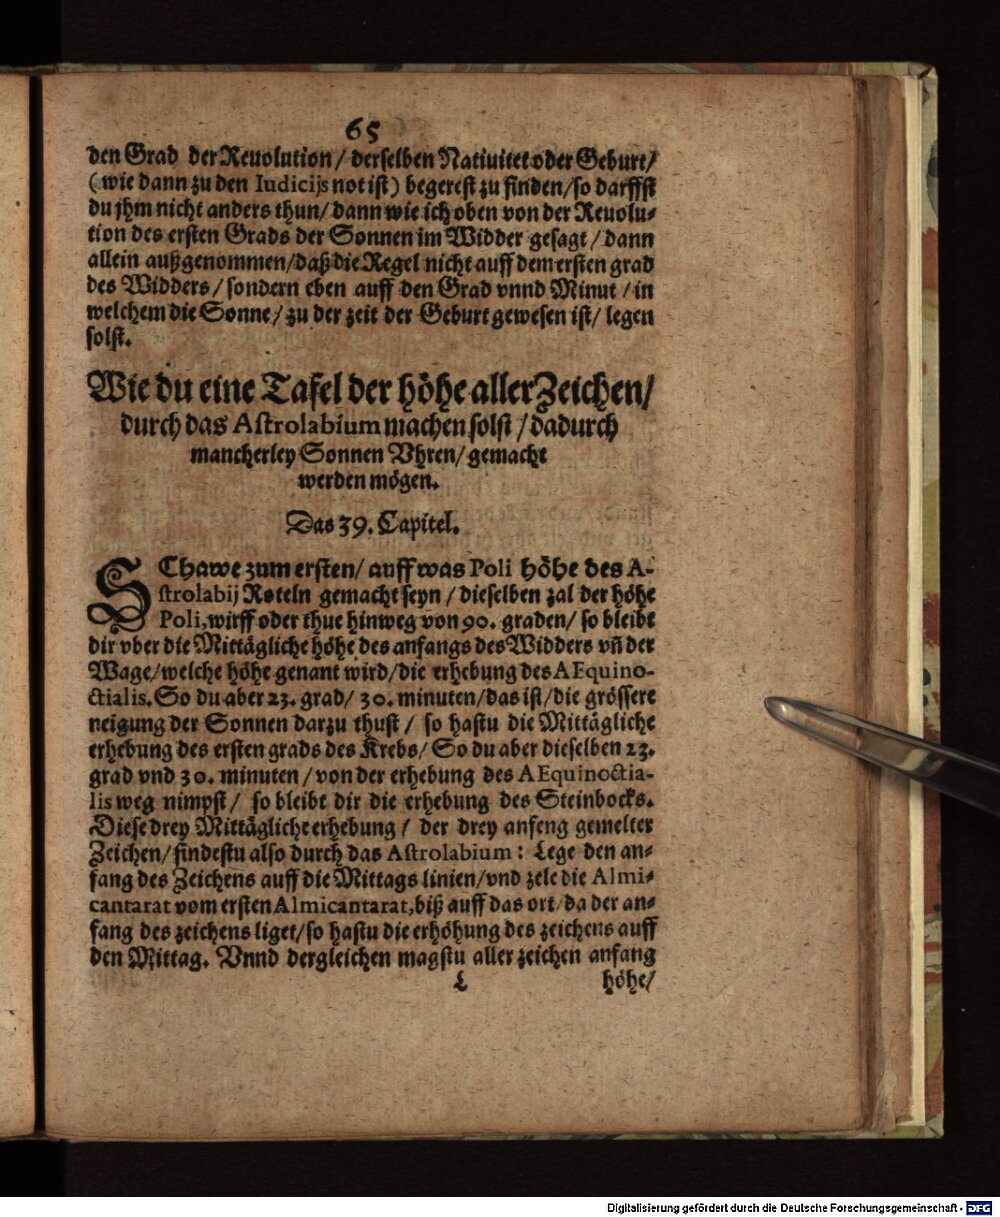 65
den Grad der Reuolution / derselben Natiuitet oder Geburt /
( wie dann zu den Iudicijs not ist ) begerest zu finden / so darffst
du jhm nicht anders thun / dann wie ich oben von der Reuolu-
tion des ersten Grads der Sonnen im Widder gesagt / dann
allein außgenommen / daß die Regel nicht auff dem ersten grad
des Widders / sondern eben auff den Grad vnnd Minut / in
welchem die Sonne / zu der zeit der Geburt gewesen ist / legen
solst.
Wie du eine Tafel der höhe aller Zeichen /
durch das Astrolabium machen solst / dadurch
mancherley Sonnen Vhren / gemacht
werden mögen.
Das 39. Capitel.
SChawe zum ersten / auff was Poli höhe des A-
strolabij Roteln gemacht seyn / dieselben zal der höhe
Poli, wirff oder thue hinweg von 90. graden / so bleibt
dir vber die Mittägliche höhe des anfangs des Widders vn̄ der
Wage / welche höhe genant wird / die erhebung des AEquino-
ctialis. So du aber 23. grad / 30. minuten / das ist / die grössere
neigung der Sonnen darzu thust / so hastu die Mittägliche
erhebung des ersten grads des Krebs / So du aber dieselben 23.
grad vnd 30. minuten / von der erhebung des AEquinoctia-
lis weg nimpst / so bleibt dir die erhebung des Steinbocks.
Diese drey Mittägliche erhebung / der drey anfeng gemelter
Zeichen / findestu also durch das Astrolabium : Lege den an-
fang des Zeichens auff die Mittags linien / vnd zele die Almi-
cantarat vom ersten Almicantarat, biß auff das ort / da der an-
fang des zeichens liget / so hastu die erhöhung des zeichens auff
den Mittag. Vnnd dergleichen magstu aller zeichen anfang
L höhe /
Digitalisierung gefördert durch die Deutsche Forschungsgemeinschaft - DFG